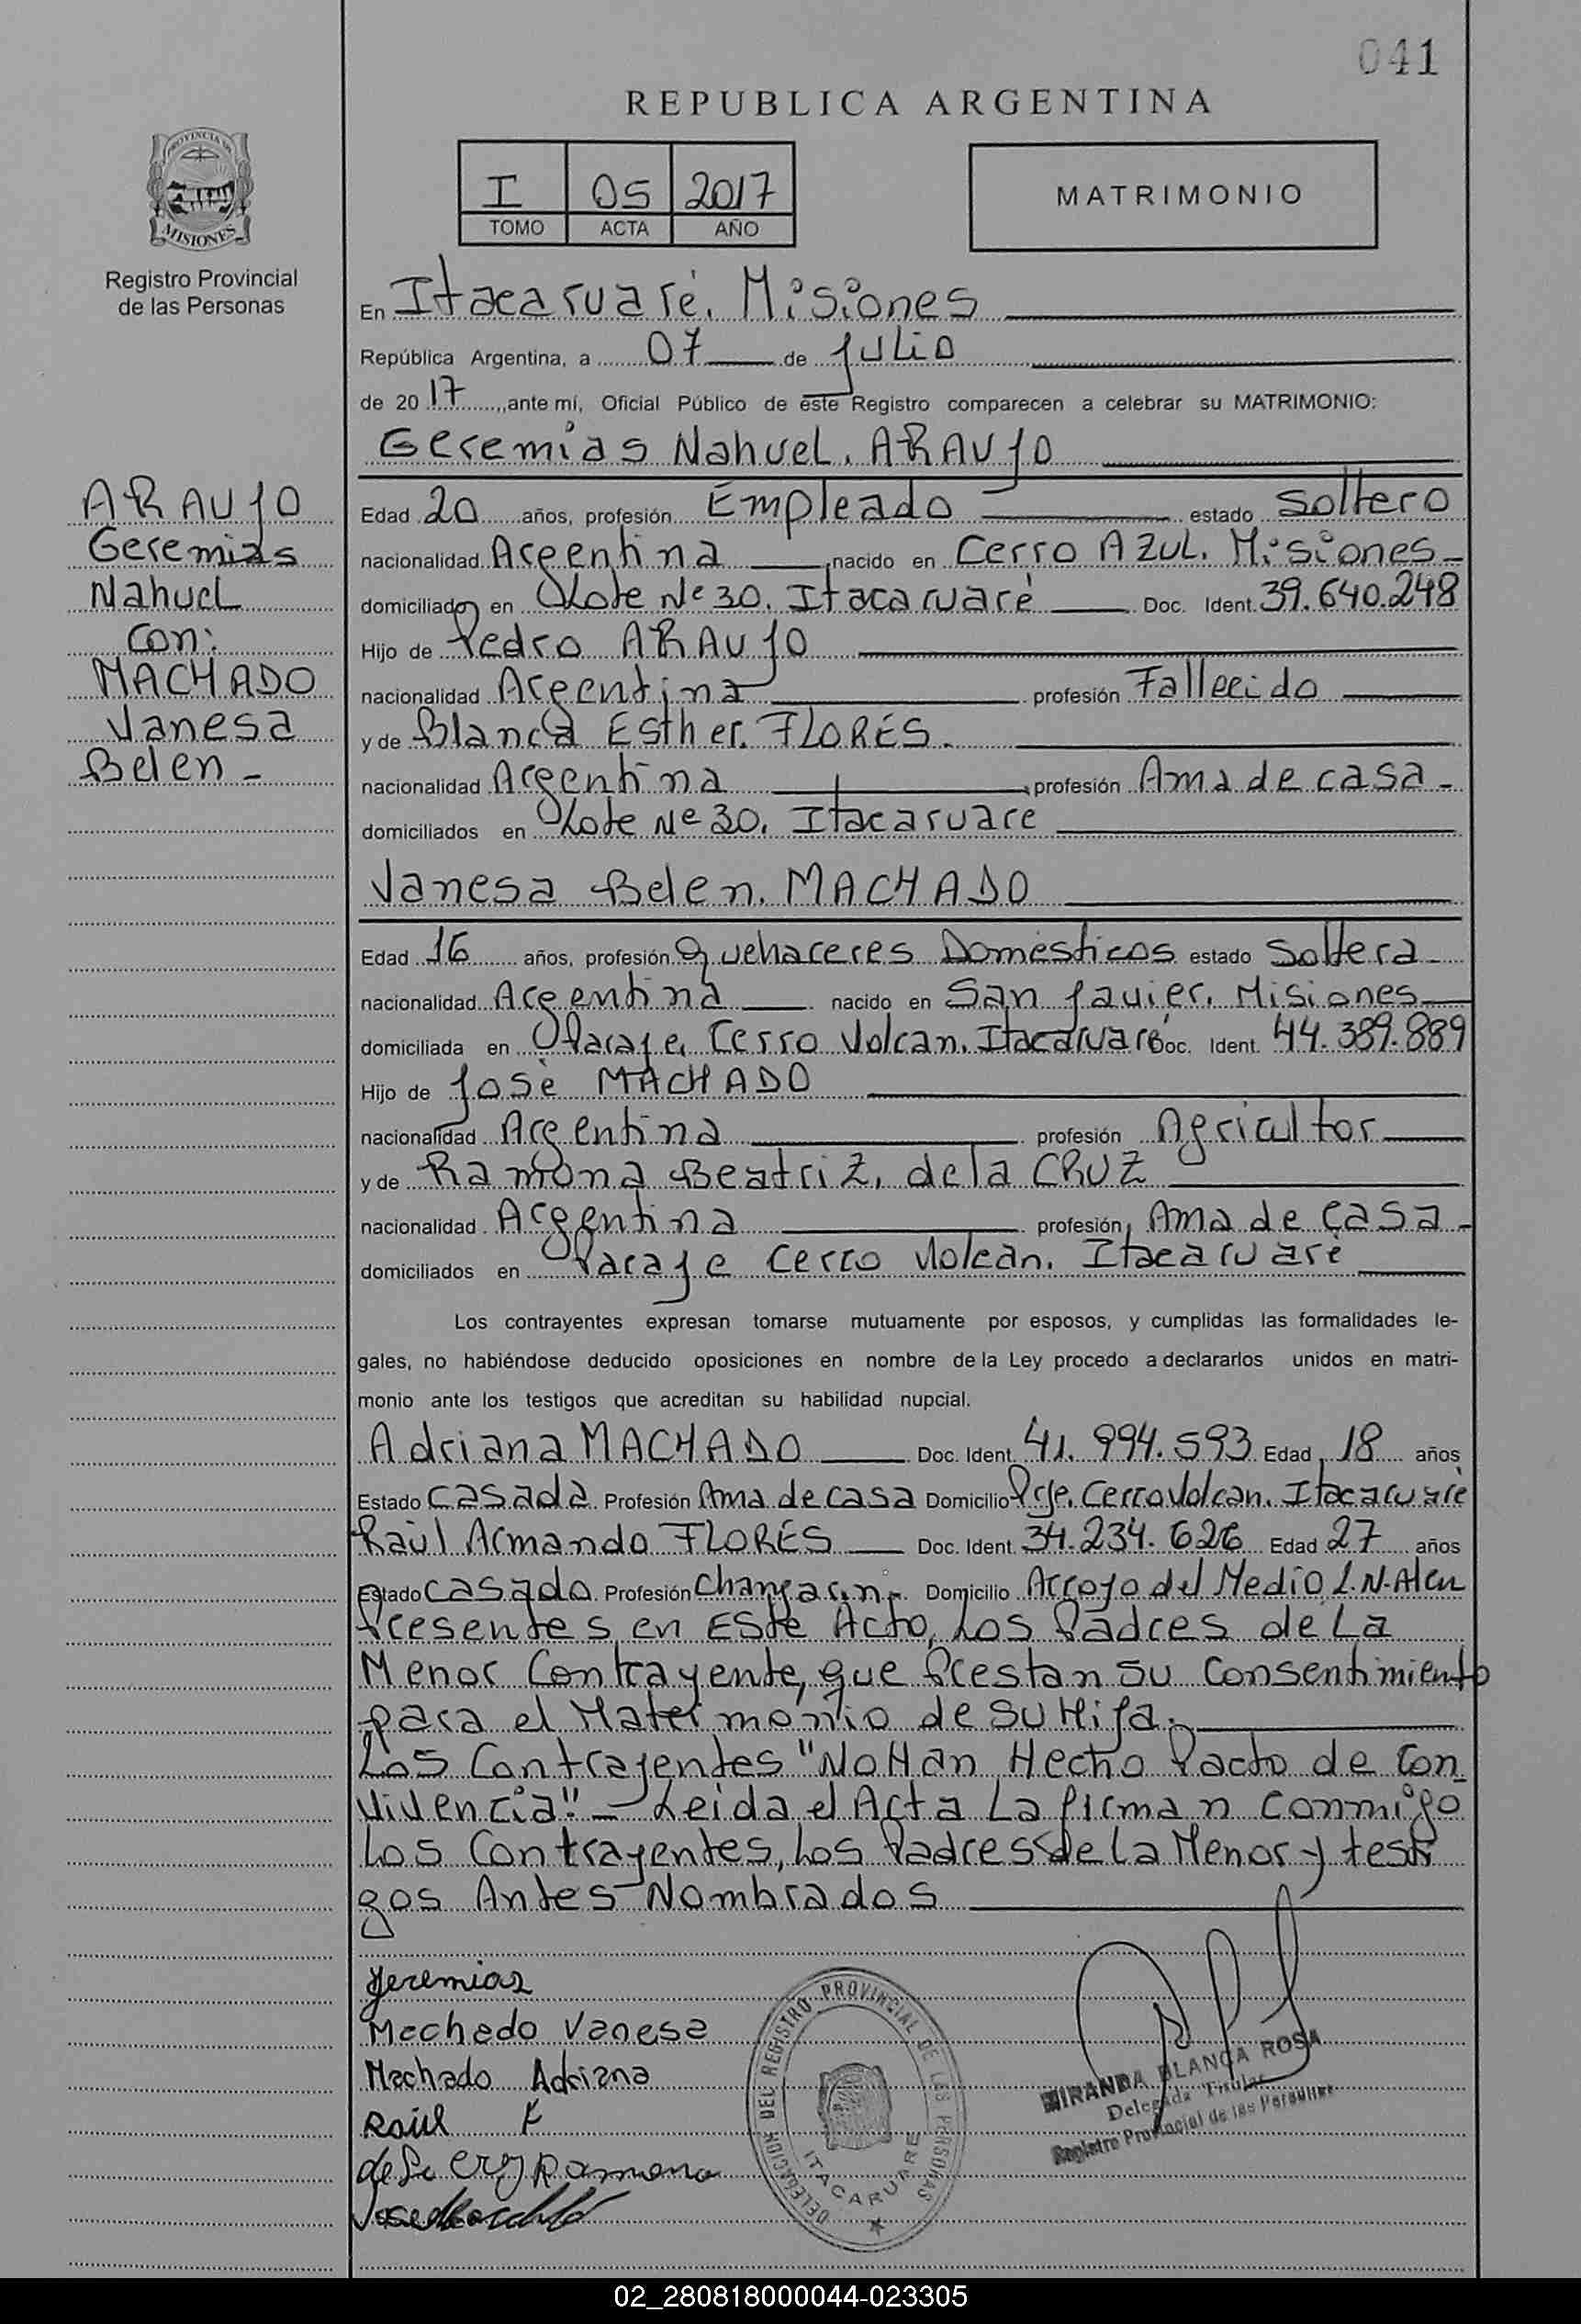 041
REPUBLICA ARGENTINA
I 05 2017
TOMO ACTA AÑO
MATRIMONIO
PROVINCIA DE
MISIONES
Registro Provincial
de las Personas
En Itacaruaré. Misiones
República Argentina, a 07 de julio
de 2017, ante mí, Oficial Público de este Registro comparecen a celebrar su MATRIMONIO:
Geremias Nahuel. ARAUJO
ARAUJO
Geremias
Nahuel
con:
MACHADO
Vanesa
Belen -
Edad 20 años, profesión Empleado estado Soltero
nacionalidad Argentina nacido en Cerro AZUL. Misiones
domiciliado en Lote Nº 30. Itacaruaré Doc. Ident. 39.640.248
Hijo de Pedro ARAUJO
nacionalidad Argentina profesión Fallecido
y de Blanca Esther. FLORES.
nacionalidad Argentina profesión Ama de casa -
domiciliados en Lote Nº 30. Itacaruare
Vanesa Belen. MACHADO
Edad 16 años, profesión Quehaceres Domésticos estado Soltera
nacionalidad Argentina nacido en San Javier. Misiones
domiciliada en Paraje. Cerro Volcan. Itacaruaré Doc. Ident. 44.389.889
Hijo de José MACHADO
nacionalidad Argentina profesión Agricultor
y de Ramona Beatriz. de la CRUZ
nacionalidad Argentina profesión Ama de casa -
domiciliados en Paraje Cerro Volcán. Itacaruaré
Los contrayentes expresan tomarse mutuamente por esposos, y cumplidas las formalidades le-
gales, no habiéndose deducido oposiciones en nombre de la Ley procedo a declararlos unidos en matri-
monio ante los testigos que acreditan su habilidad nupcial.
Adriana MACHADO Doc. Ident. 41.994.593 Edad 18 años
Estado Casada Profesión Ama de casa Domicilio Prje. Cerro Volcan. Itacaruaré
Raúl Armando FLORES Doc. Ident. 34.234.626 Edad 27 años
Estado Casado Profesión Changarin. Domicilio Arroyo del Medio L.N. Alem
Presentes en Este Acto, Los Padres de La
Menor Contrayente, que Prestan su Consentimiento
para el Matrimonio de su Hija.
Los Contrayentes "No Han Hecho Pacto de Con
vivencia". - Leida el Acta La firman conmigo
Los Contrayentes, Los Padres de La Menor y testi
gos Antes Nombrados
Jeremias
Machado Vanesa
Machado Adriana
Raúl F
de la Cruz Ramona
Jose Machado
DELEGACION DEL REGISTRO PROVINCIAL DE LAS PERSONAS
ITACARUARE
MIRANDA BLANCA ROSA
Delegada Titular
Registro Provincial de las Personas
02_280818000044-023305